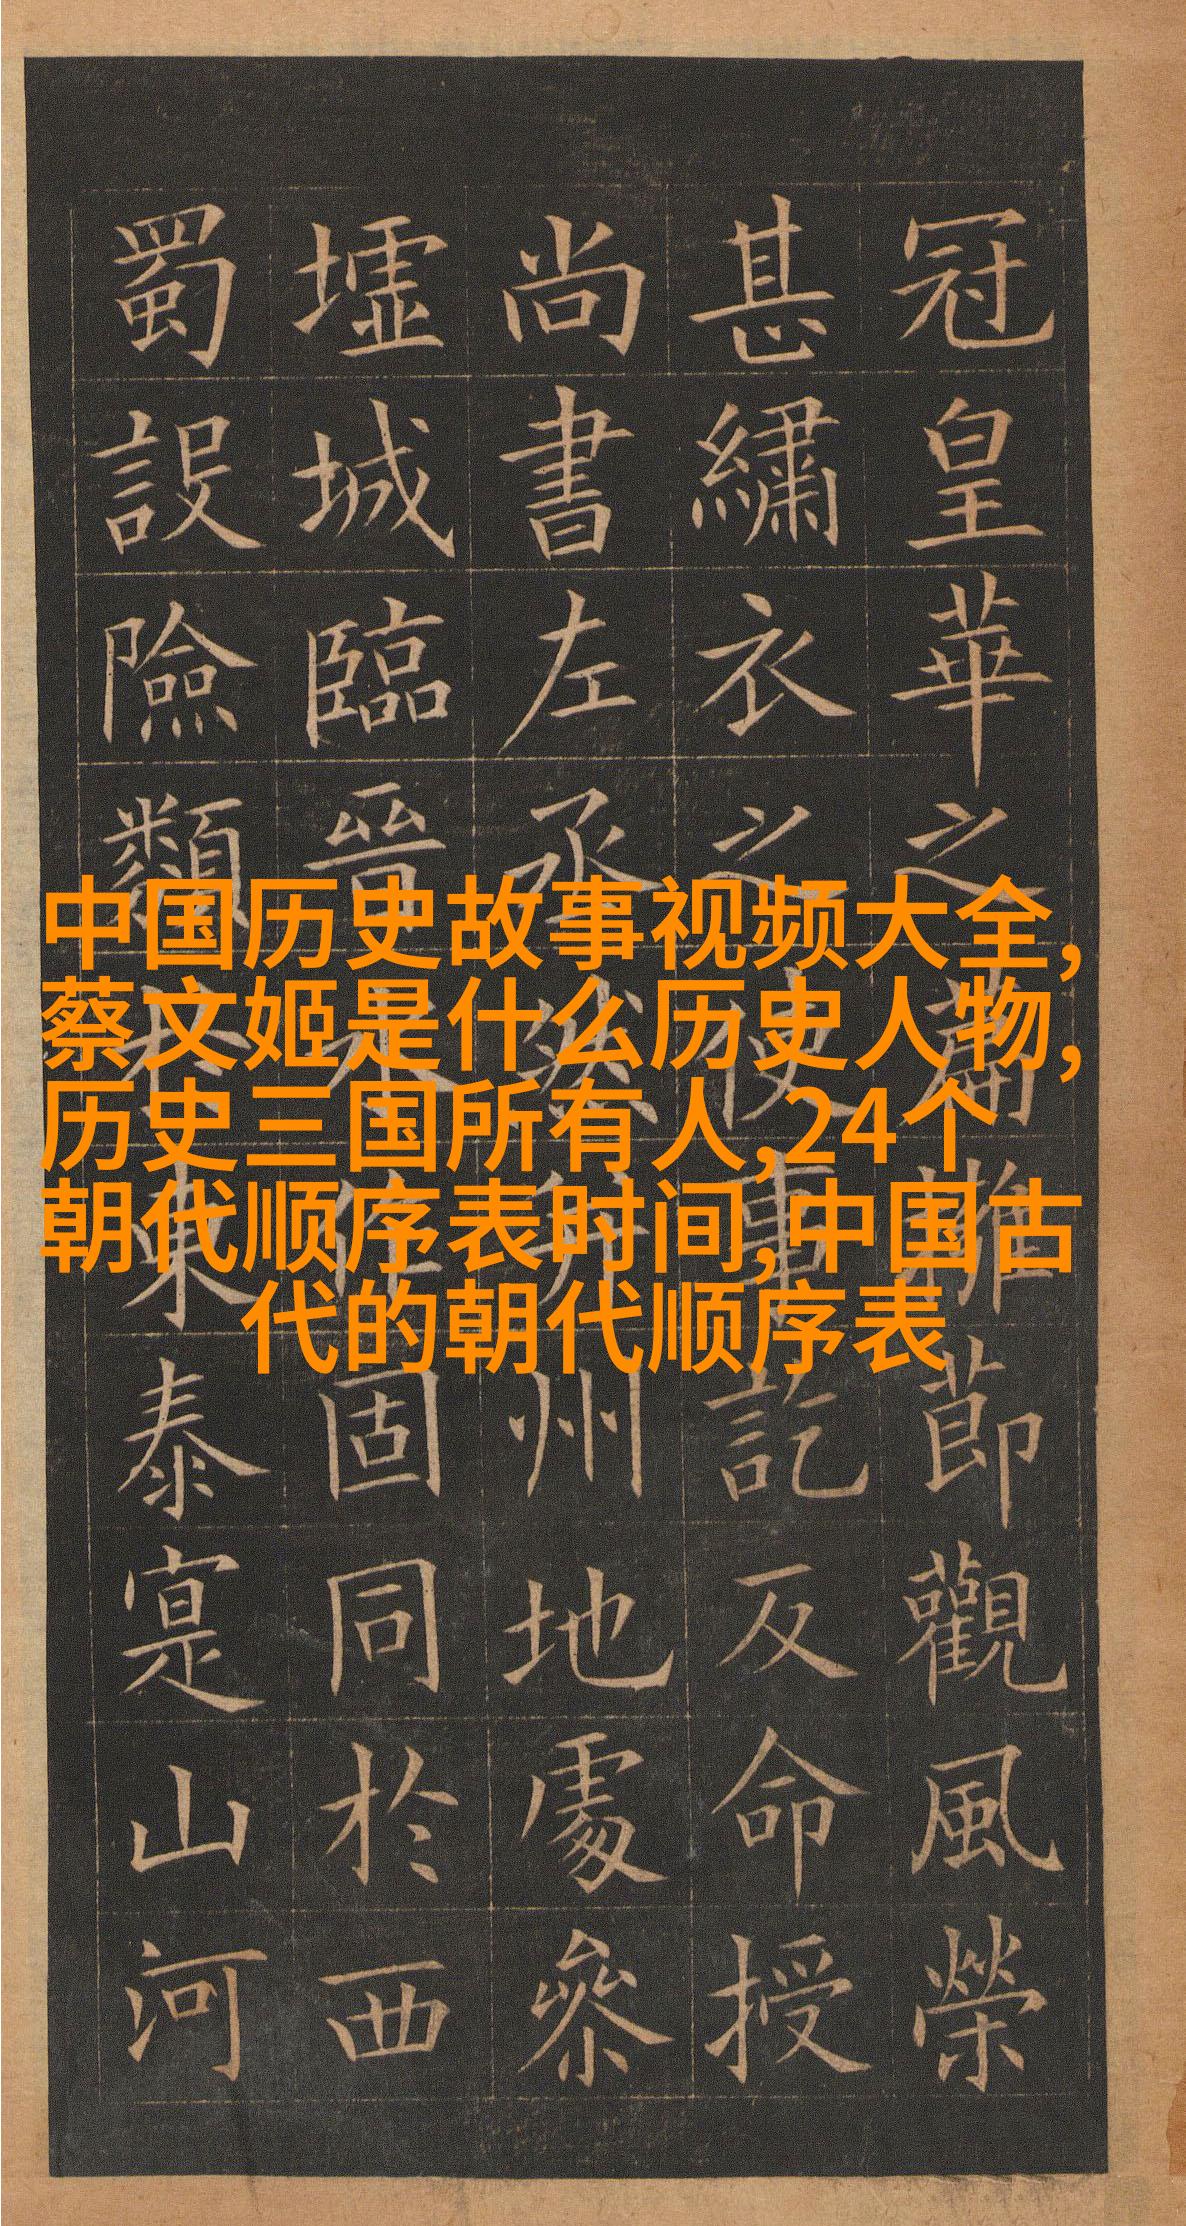 冠皇華之擁節觀風榮
甚繡衣之使事訖反命授
尚書左丞州地處參
墟城臨晉作固同於西
蜀設險類東泰寔山河
中国历史故事视频大全,
蔡文姬是什么历史人物,
历史三国所有人,24个
朝代顺序表时间,中国古
代的朝代顺序表